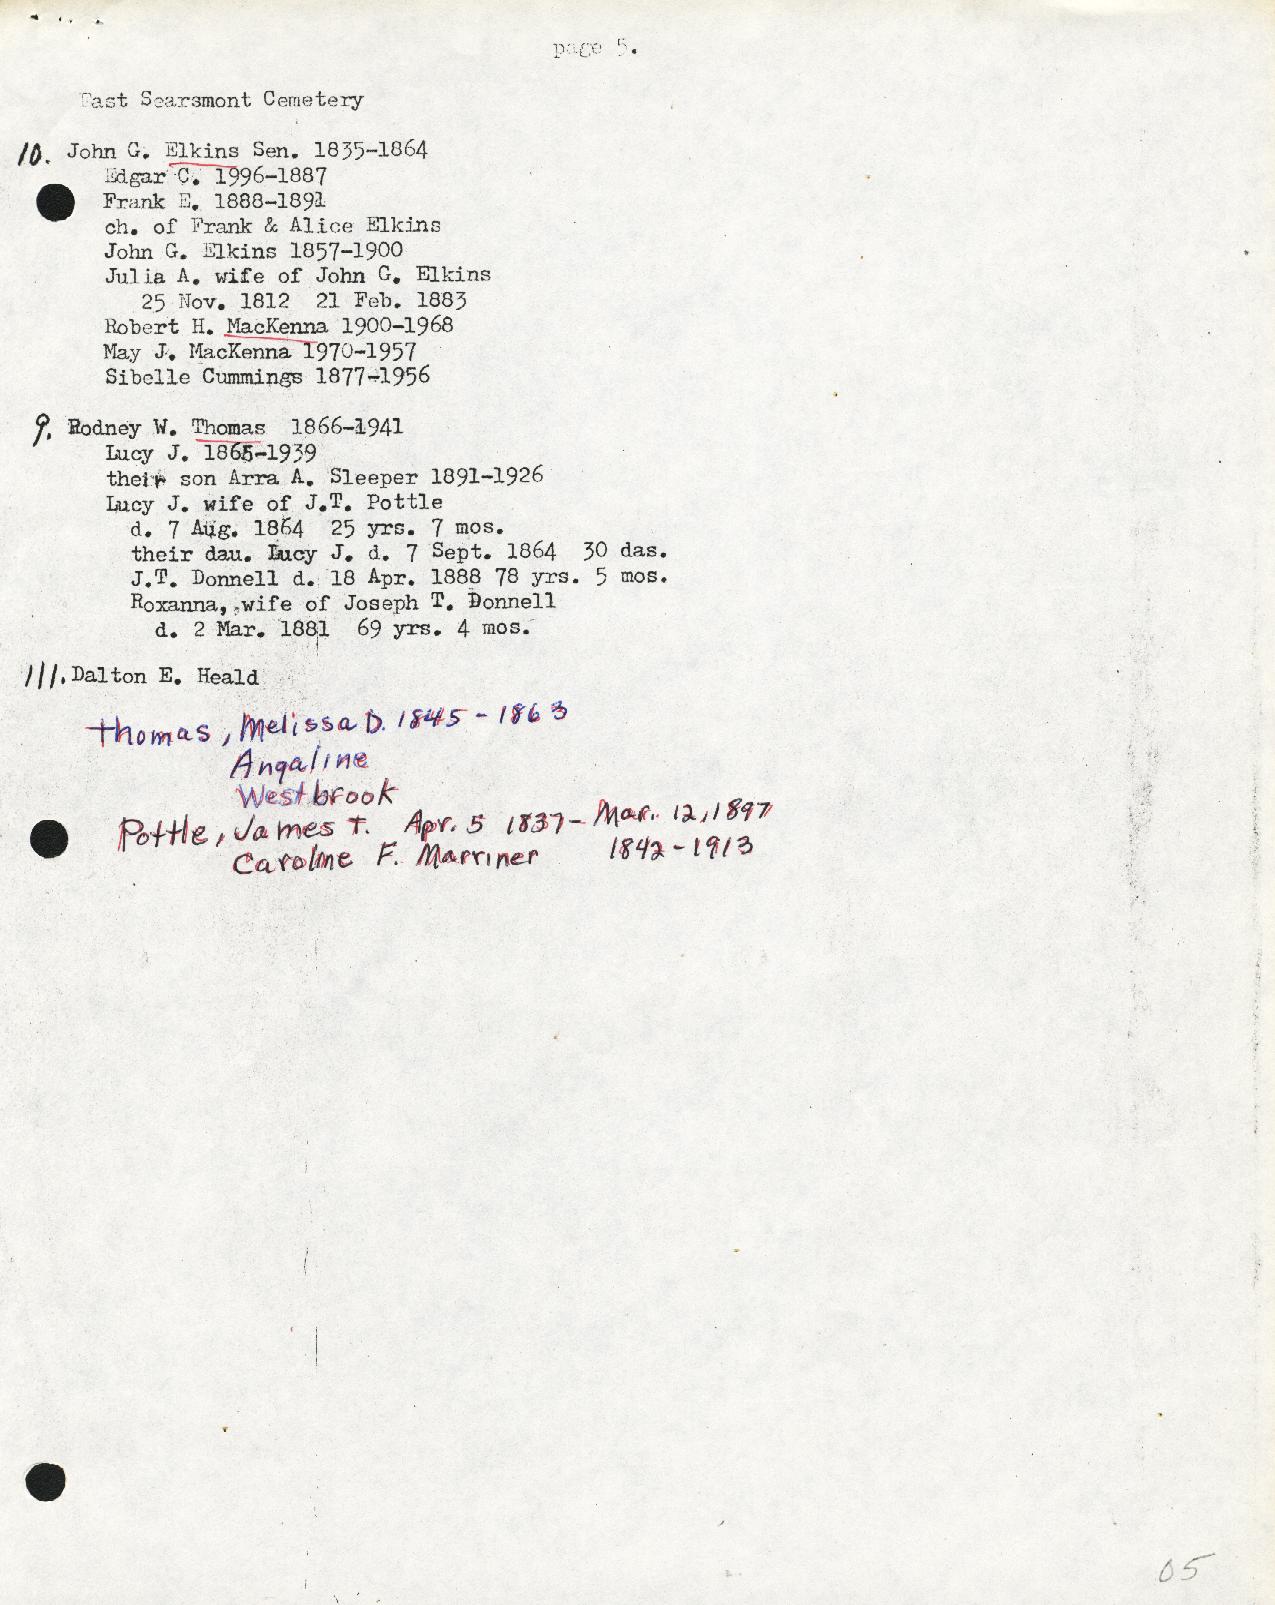 page 5.
East Searsmont Cemetery
10. John G. Elkins Sen. 1835-1864
Edgar C. 1996-1887
Frank E. 1888-1891
ch. of Frank & Alice Elkins
John G. Elkins 1857-1900
Julia A. wife of John G. Elkins
25 Nov. 1812 21 Feb. 1883
Robert H. MacKenna 1900-1968
May J. MacKenna 1970-1957
Sibelle Cummings 1877-1956
9. Rodney W. Thomas 1866-1941
Lucy J. 1865-1939
their son Arra A. Sleeper 1891-1926
Lucy J. wife of J.T. Pottle
d. 7 Aug. 1864 25 yrs. 7 mos.
their dau. Lucy J. d. 7 Sept. 1864 30 das.
J.T. Donnell d. 18 Apr. 1888 78 yrs. 5 mos.
Roxanna, wife of Joseph T. Donnell
d. 2 Mar. 1881 69 yrs. 4 mos.
111. Dalton E. Heald
Thomas, Melissa D. 1845-1863
Angaline
Westbrook
Pottle, James T. Apr. 5 1837- Mar. 12, 1897
Caroline F. Marriner 1842-1913
05